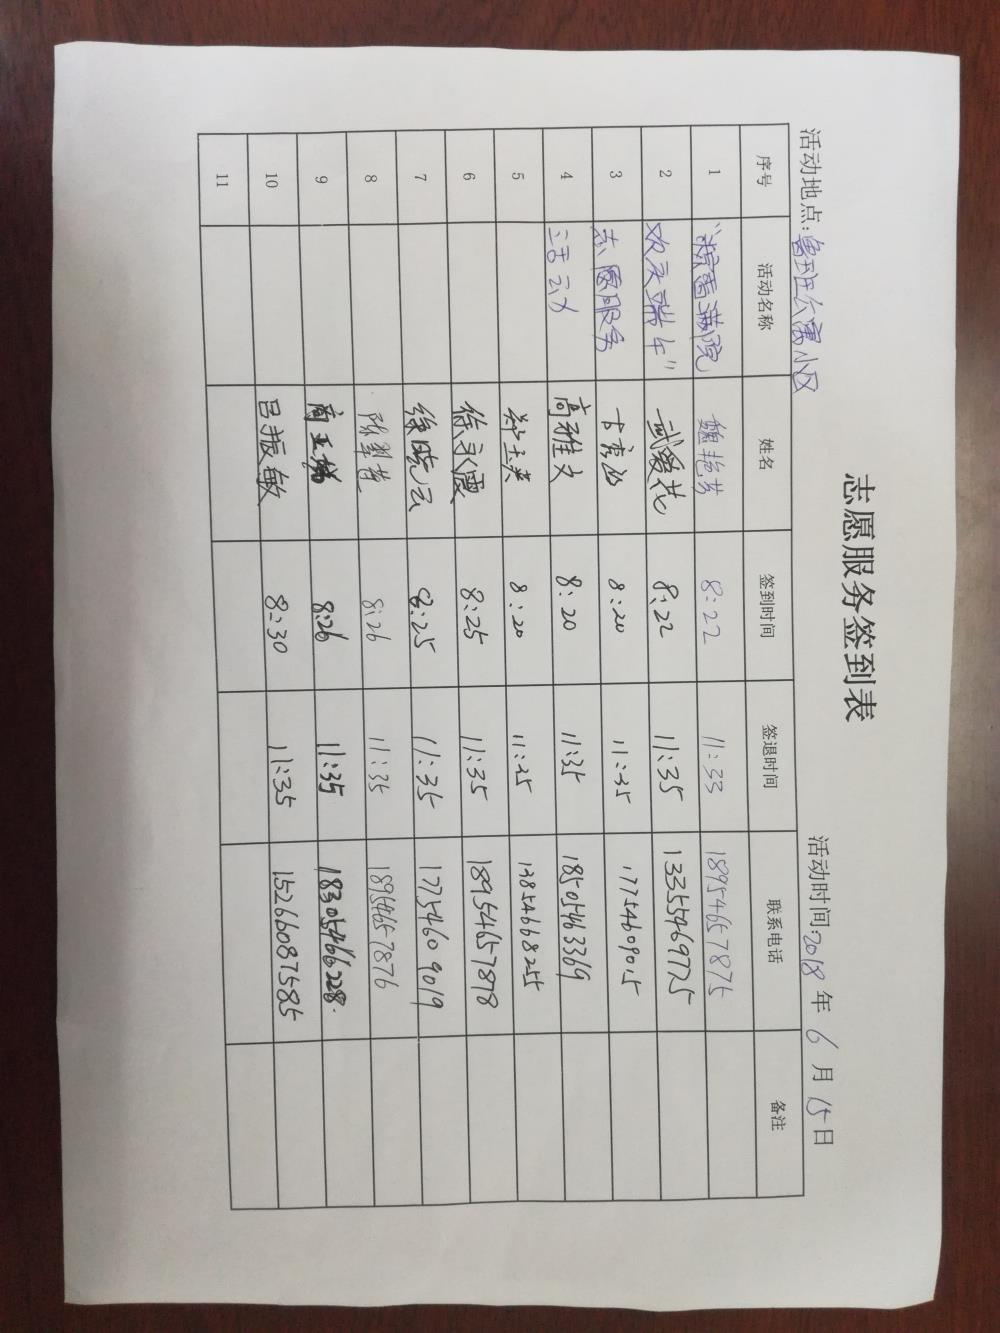 志愿服务签到表
活动地点:鲁班公寓小区 活动时间:2018年6月15日
序号 活动名称 姓名 签到时间 签退时间 联系电话 备注
1 “粽香满院 魏艳芳 8:22 11:33 18954657875
2 欢庆端午” 武爱花 8:22 11:35 13355469725
3 志愿服务 8:20 11:35 17754609015
4 活动 高雅文 8:20 11:35 18505463369
5 郑玉英 8:20 11:35 13854668255
6 徐永霞 8:25 11:35 18954657878
7 徐晓云 8:25 11:35 17754609019
8 陈翠芳 8:26 11:35 18954657876
9 商玉梅 8:26 11:35 18305466228
10 吕振敏 8:30 11:35 15266087585
11